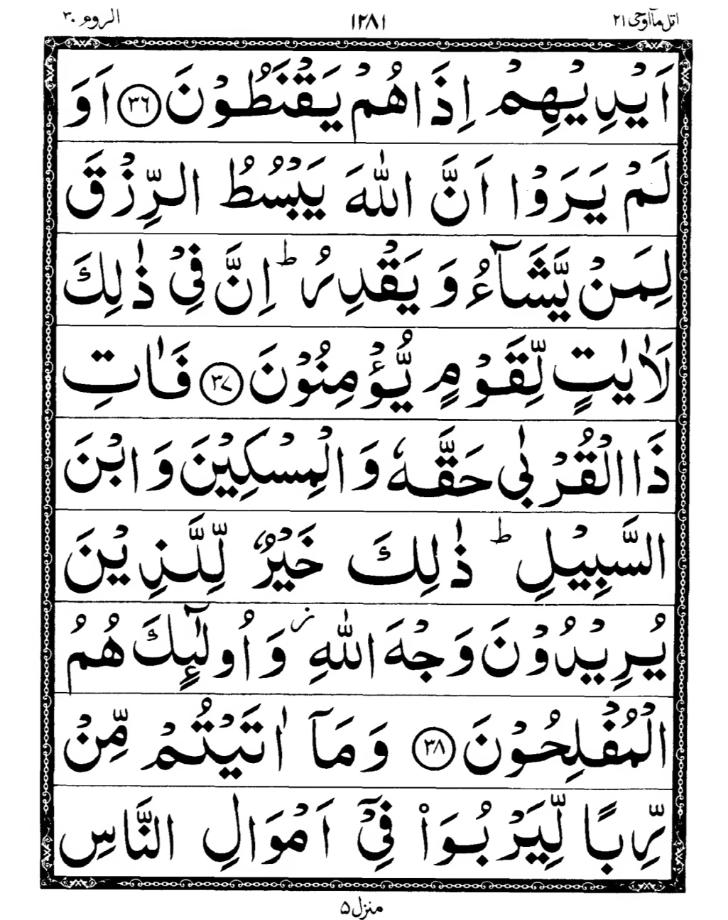 اتل مآاوحی ۲۱ ۱۲۸۱ الروم ۳۰
اَيْدِيْهِمْ اِذَا هُمْ يَقْنَطُوْنَ ﴿۳۶﴾ اَوَ
لَمْ يَرَوْا اَنَّ اللّٰهَ يَبْسُطُ الرِّزْقَ
لِمَنْ يَّشَآءُ وَ يَقْدِرُ ؕ اِنَّ فِيْ ذٰلِكَ
لَاٰيٰتٍ لِّقَوْمٍ يُّؤْمِنُوْنَ ﴿۳۷﴾ فَاٰتِ
ذَا الْقُرْبٰى حَقَّهٗ وَ الْمِسْكِيْنَ وَ ابْنَ
السَّبِيْلِ ؕ ذٰلِكَ خَيْرٌ لِّلَّذِيْنَ
يُرِيْدُوْنَ وَجْهَ اللّٰهِ ؗ وَ اُولٰٓئِكَ هُمُ
الْمُفْلِحُوْنَ ﴿۳۸﴾ وَ مَآ اٰتَيْتُمْ مِّنْ
رِّبًا لِّيَرْبُوَا۟ فِيْٓ اَمْوَالِ النَّاسِ
منزل ۵